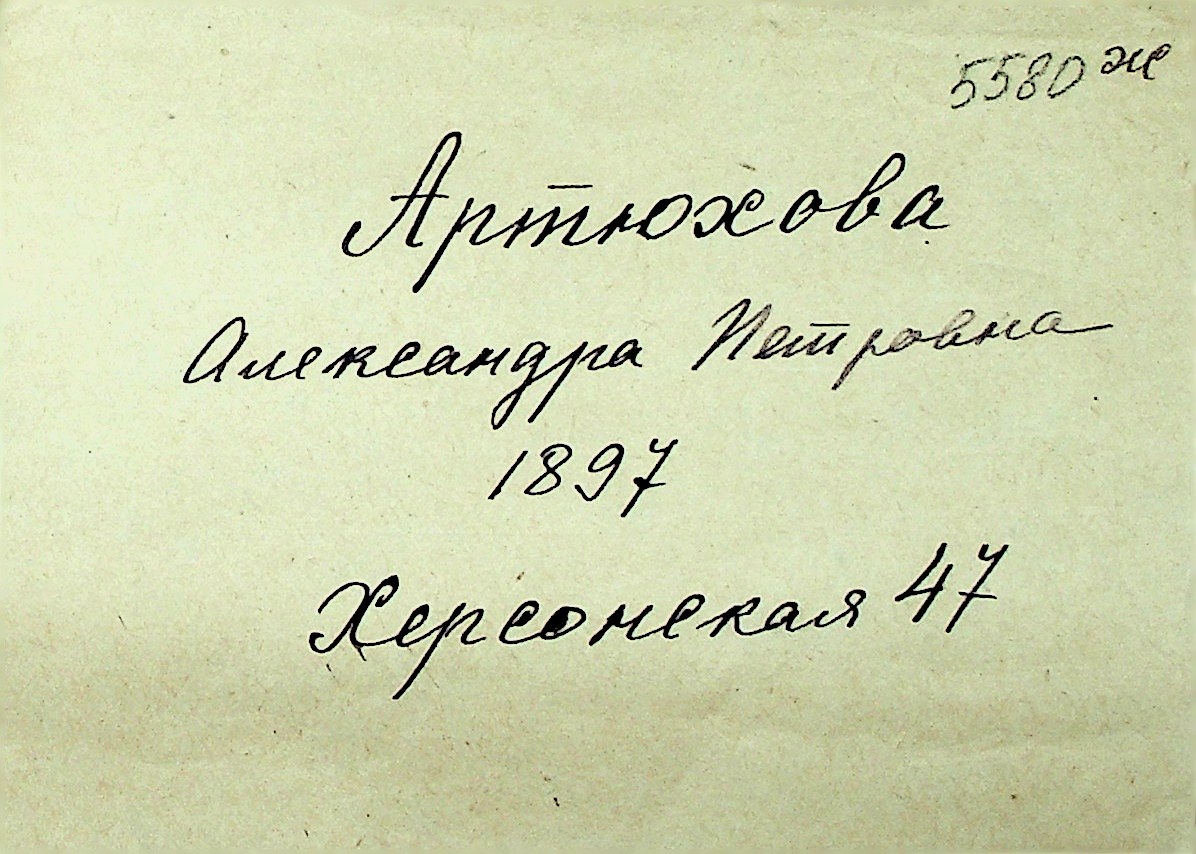 5580 ж
Артюхова
Александра Петровна
1897
Херсонская 47